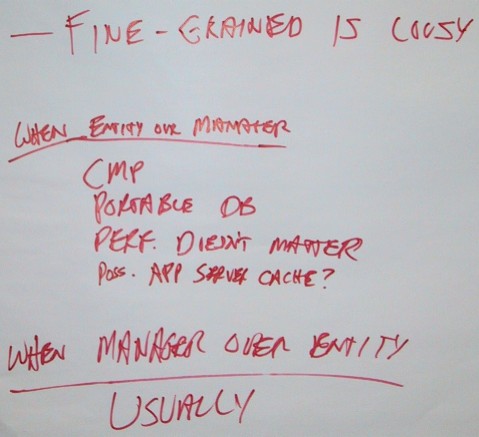 — FINE-GRAINED IS LOUSY
WHEN ENTITY OVR MANAGER
CMP
PORTABLE DB
PERF. DIDN'T MATTER
POSS. APP SERVER CACHE?
WHEN MANAGER OVER ENTITY
USUALLY